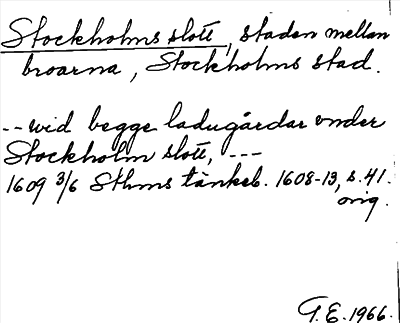 Stockholms slott, staden mellan
broarna, Stockholms stad.
--wid begge ladugårdar vnder
Stockholm slott, ---
1609 3/6 Sthms tänkeb. 1608-13, s. 41.
orig.
G.E. 1966.